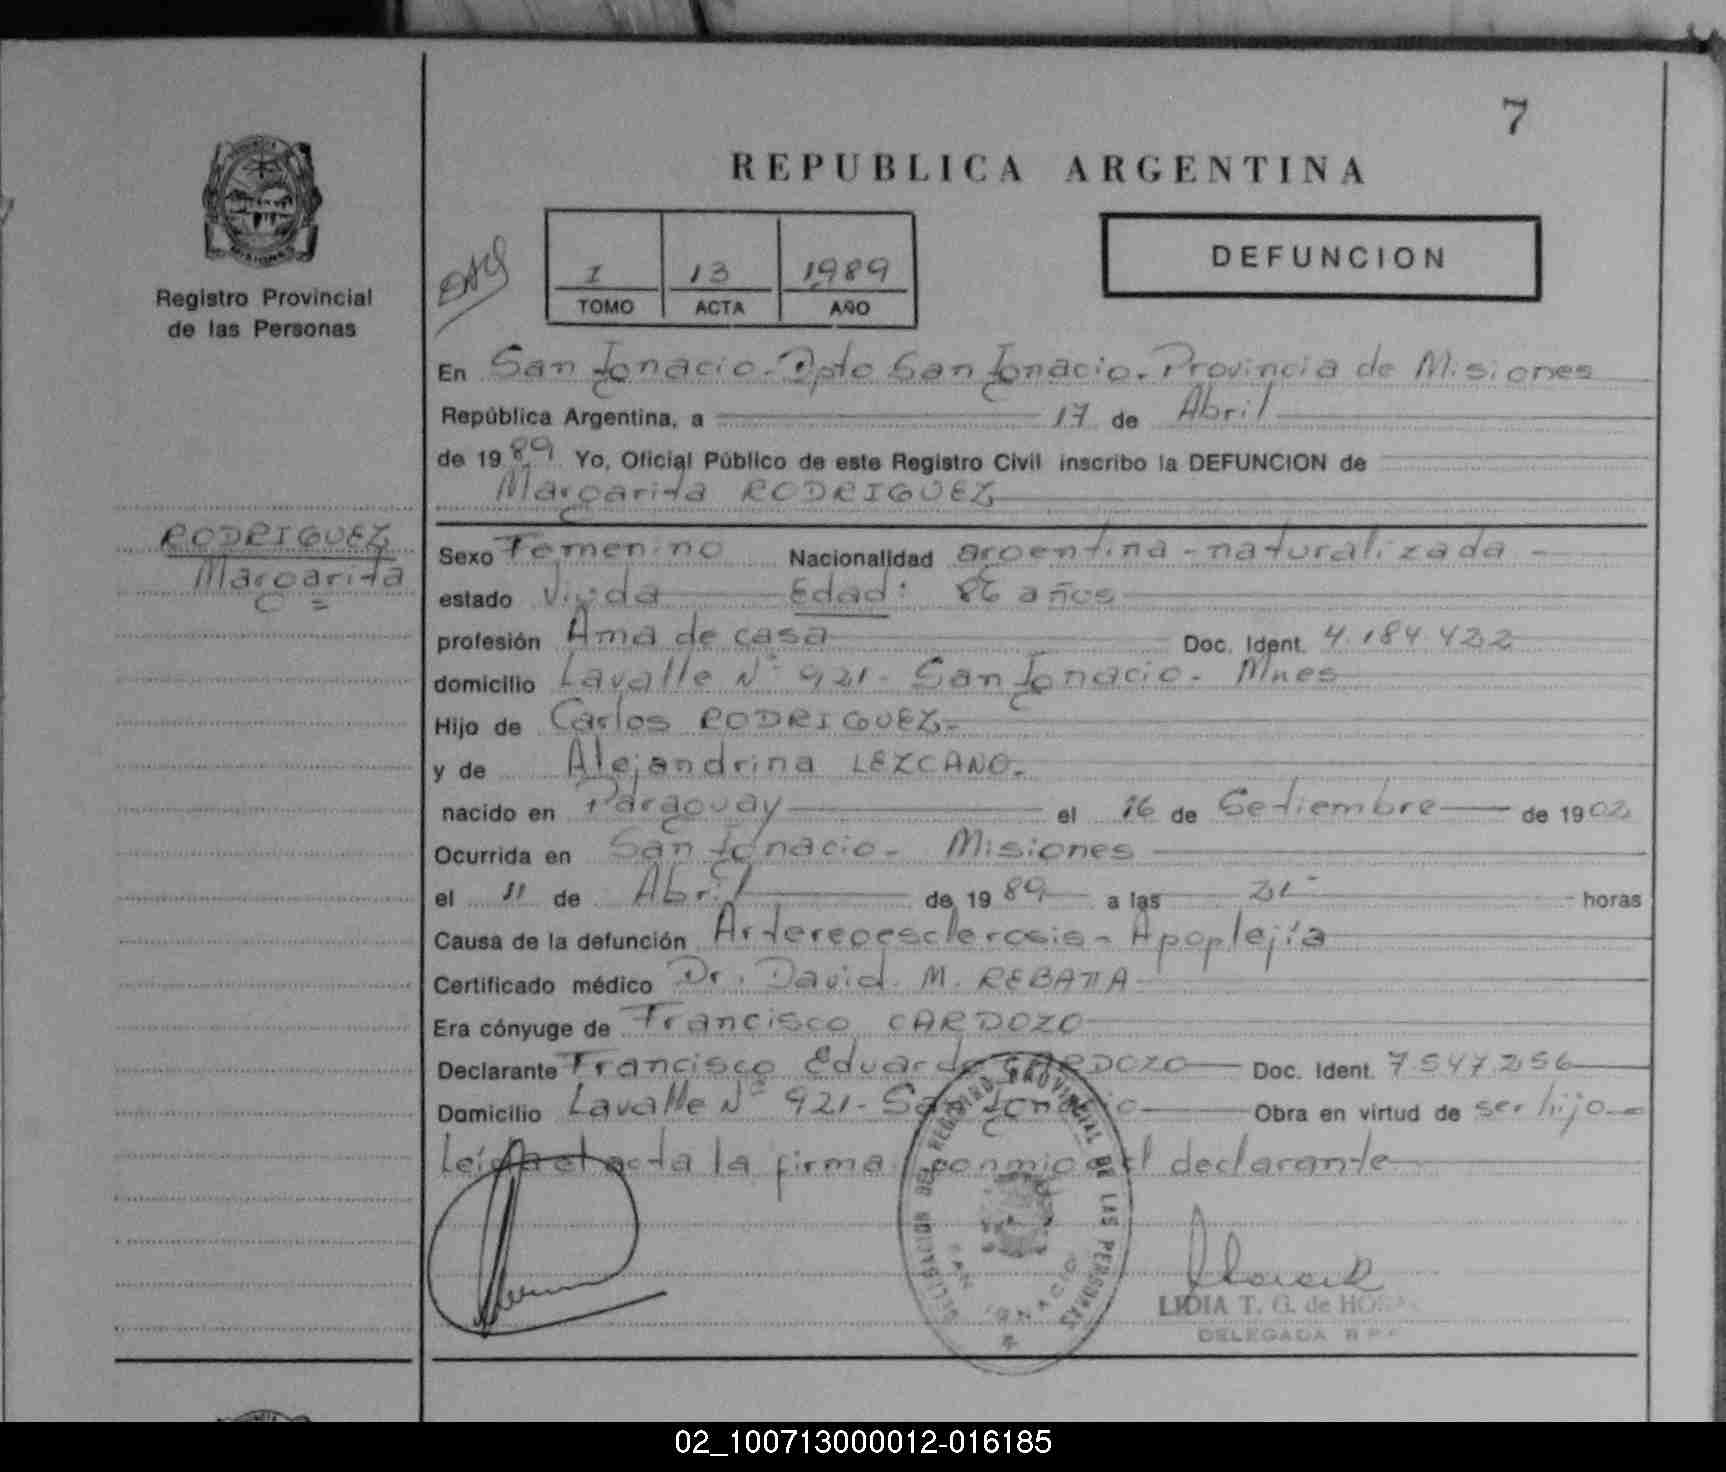 7
REPUBLICA ARGENTINA
Registro Provincial
de las Personas
I 13 1989
TOMO ACTA AÑO
DEFUNCION
En San Ignacio. Dpto San Ignacio. Provincia de Misiones
República Argentina, a 17 de Abril
de 1989 Yo, Oficial Público de este Registro Civil inscribo la DEFUNCION de
Margarita RODRIGUEZ
RODRIGUEZ
Margarita
Sexo Femenino Nacionalidad argentina - naturalizada -
estado Viuda Edad: 86 años
profesión Ama de casa Doc. Ident. 4.184.422
domicilio Lavalle Nº 921 - San Ignacio - Mnes
Hijo de Carlos RODRIGUEZ.-
y de Alejandrina LEZCANO.-
nacido en Paraguay el 16 de Setiembre de 1902
Ocurrida en San Ignacio - Misiones
el 11 de Abril de 1989 a las 21- horas
Causa de la defunción Artereoesclerosis - Apoplejía
Certificado médico Dr. David. M. REBATTA
Era cónyuge de Francisco CARDOZO
Declarante Francisco Eduardo CARDOZO Doc. Ident. 7.547.256
Domicilio Lavalle Nº 921 - San Ignacio Obra en virtud de ser hijo
Leída el acta la firma conmigo el declarante
DELEGACION DEL REGISTRO PROVINCIAL DE LAS PERSONAS
SAN IGNACIO
LIDIA T. G. de
DELEGADA R.P.P.
02_100713000012-016185